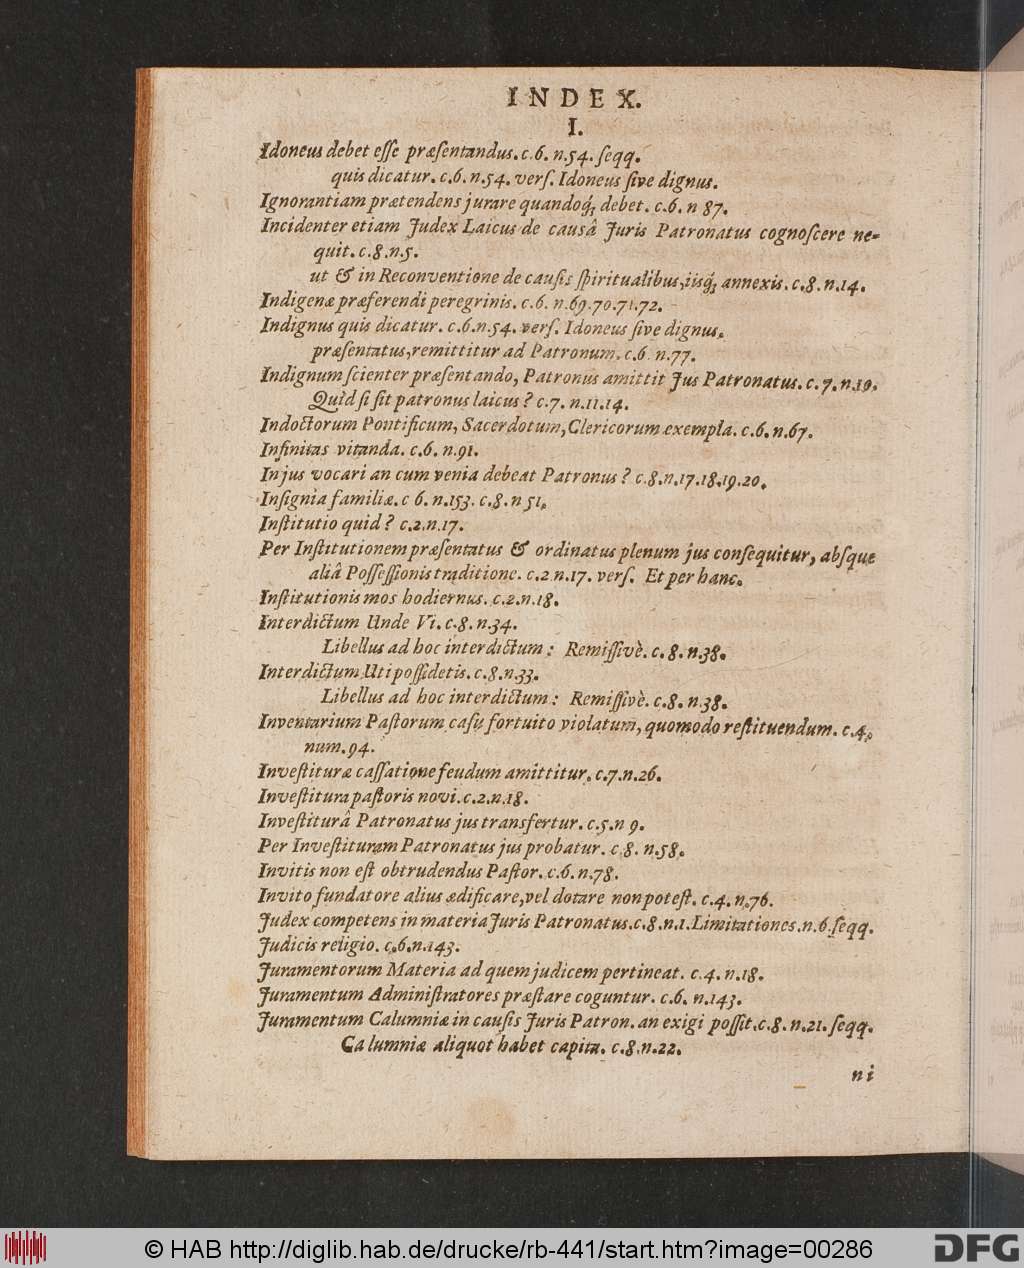 INDEX.
I.
Idoneus debet eſſe præſentandus. c. 6. n. 54. ſeqq.
quis dicatur. c. 6. n. 54. verſ. Idoneus ſive dignus.
Ignorantiam prætendens jurare quandoq́; debet. c. 6. n 87.
Incidenter etiam Judex Laicus de causâ Juris Patronatus cognoſcere ne-
quit. c. 8. n. 5.
ut & in Reconventione de cauſis ſpiritualibus, iisq́; annexis. c. 8. n. 14.
Indigenæ præferendi peregrinis. c. 6. n. 69. 70. 71. 72.
Indignus quis dicatur. c. 6. n. 54. verſ. Idoneus ſive dignus.
præſentatus, remittitur ad Patronum. c. 6. n. 77.
Indignum ſcienter præſentando, Patronus amittit Jus Patronatus. c. 7. n. 19.
Quid ſi ſit patronus laicus? c. 7. n. 11. 14.
Indoctorum Pontificum, Sacerdotum, Clericorum exempla. c. 6. n. 67.
Infinitas vitanda. c. 6. n. 91.
In jus vocari an cum venia debeat Patronus? c. 8. n. 17. 18. 19. 20.
Inſignia familiæ. c 6. n. 153. c. 8. n 51.
Inſtitutio quid? c. 2. n. 17.
Per Inſtitutionem præſentatus & ordinatus plenum jus conſequitur, abſque
aliâ Poſſeſſionis traditione. c. 2 n. 17. verſ. Et per hanc.
Inſtitutionis mos hodiernus. c. 2. n. 18.
Interdictum Unde Vi. c. 8. n. 34.
Libellus ad hoc interdictum: Remiſſivè. c. 8. n. 38.
Interdictum Uti poſſidetis. c. 8. n. 33.
Libellus ad hoc interdictum: Remiſſivè. c. 8. n. 38.
Inventarium Paſtorum caſu fortuito violatum, quomodo reſtituendum. c. 4.
num. 94.
Inveſtituræ caſſatione feudum amittitur. c. 7. n. 26.
Inveſtitura paſtoris novi. c. 2. n. 18.
Inveſtiturâ Patronatus jus transfertur. c. 5. n 9.
Per Inveſtituram Patronatus jus probatur. c. 8. n. 58.
Invitis non eſt obtrudendus Paſtor. c. 6. n. 78.
Invito fundatore alius ædificare, vel dotare non poteſt. c. 4. n. 76.
Judex competens in materia Juris Patronatus. c. 8. n. 1. Limitationes. n. 6. ſeqq.
Judicis religio. c. 6. n. 143.
Juramentorum Materia ad quem judicem pertineat. c. 4. n. 18.
Juramentum Adminiſtratores præſtare coguntur. c. 6. n. 143.
Juramentum Calumniæ in cauſis Juris Patron. an exigi poſſit. c. 8. n. 21. ſeqq.
Calumniæ aliquot habet capita. c. 8. n. 22.
ni
© HAB http://diglib.hab.de/drucke/rb-441/start.htm?image=00286
DFG